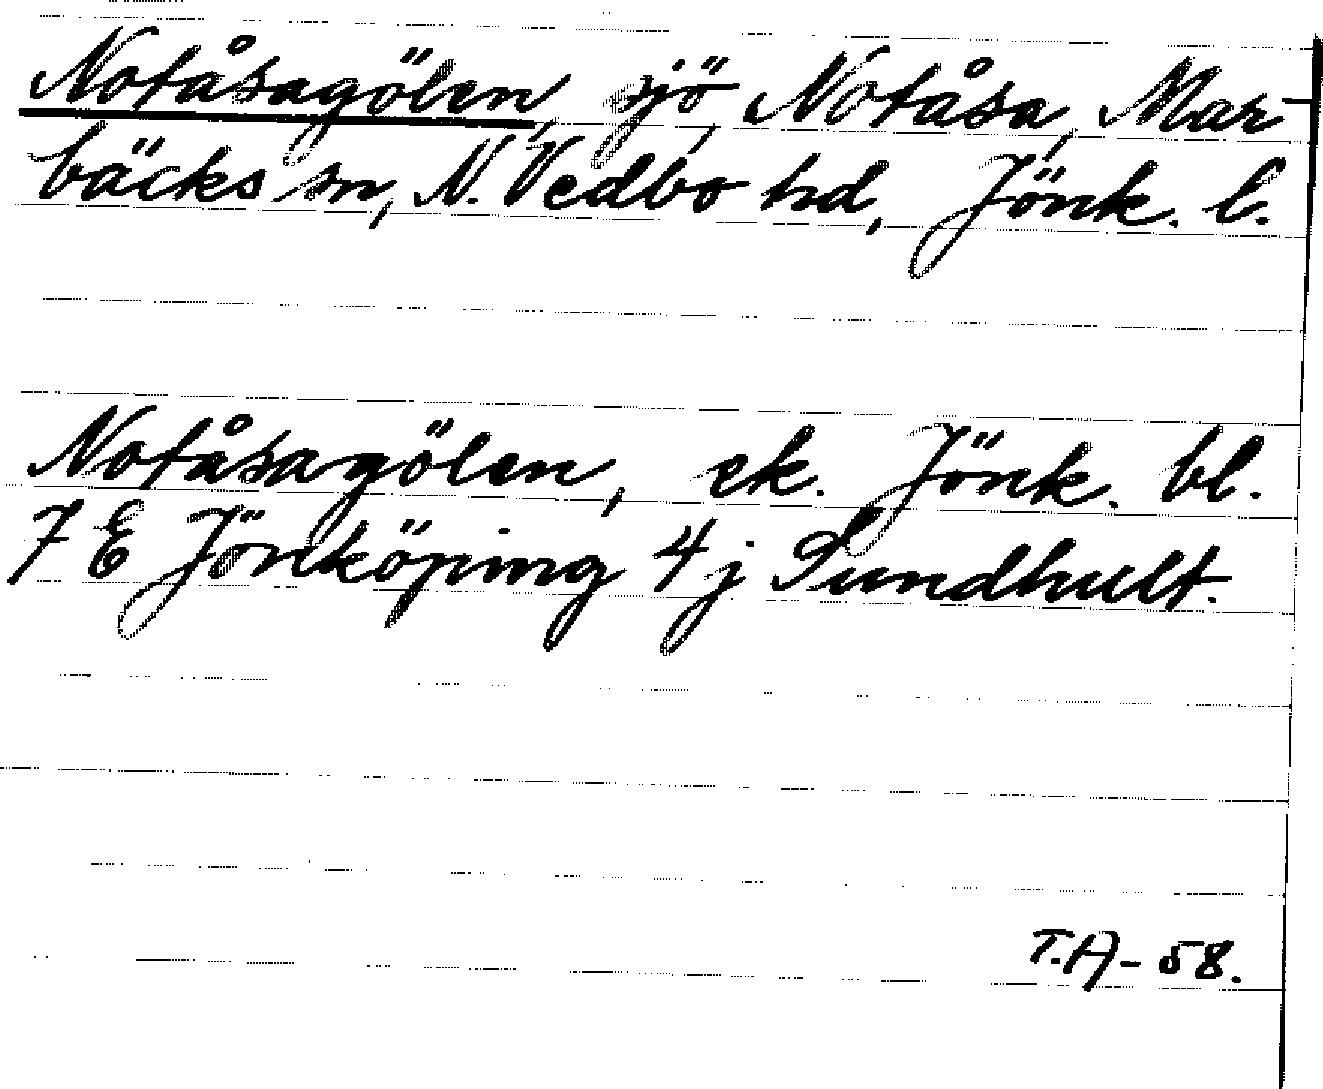 Notåsagölen, sjö, Notåsa, Mar-
bäcks sn, N. Vedbo hd, Jönk. l.
Notåsagölen, ek. Jönk. bl.
7 E Jönköping 4 j Sundhult.
T.A - 58.